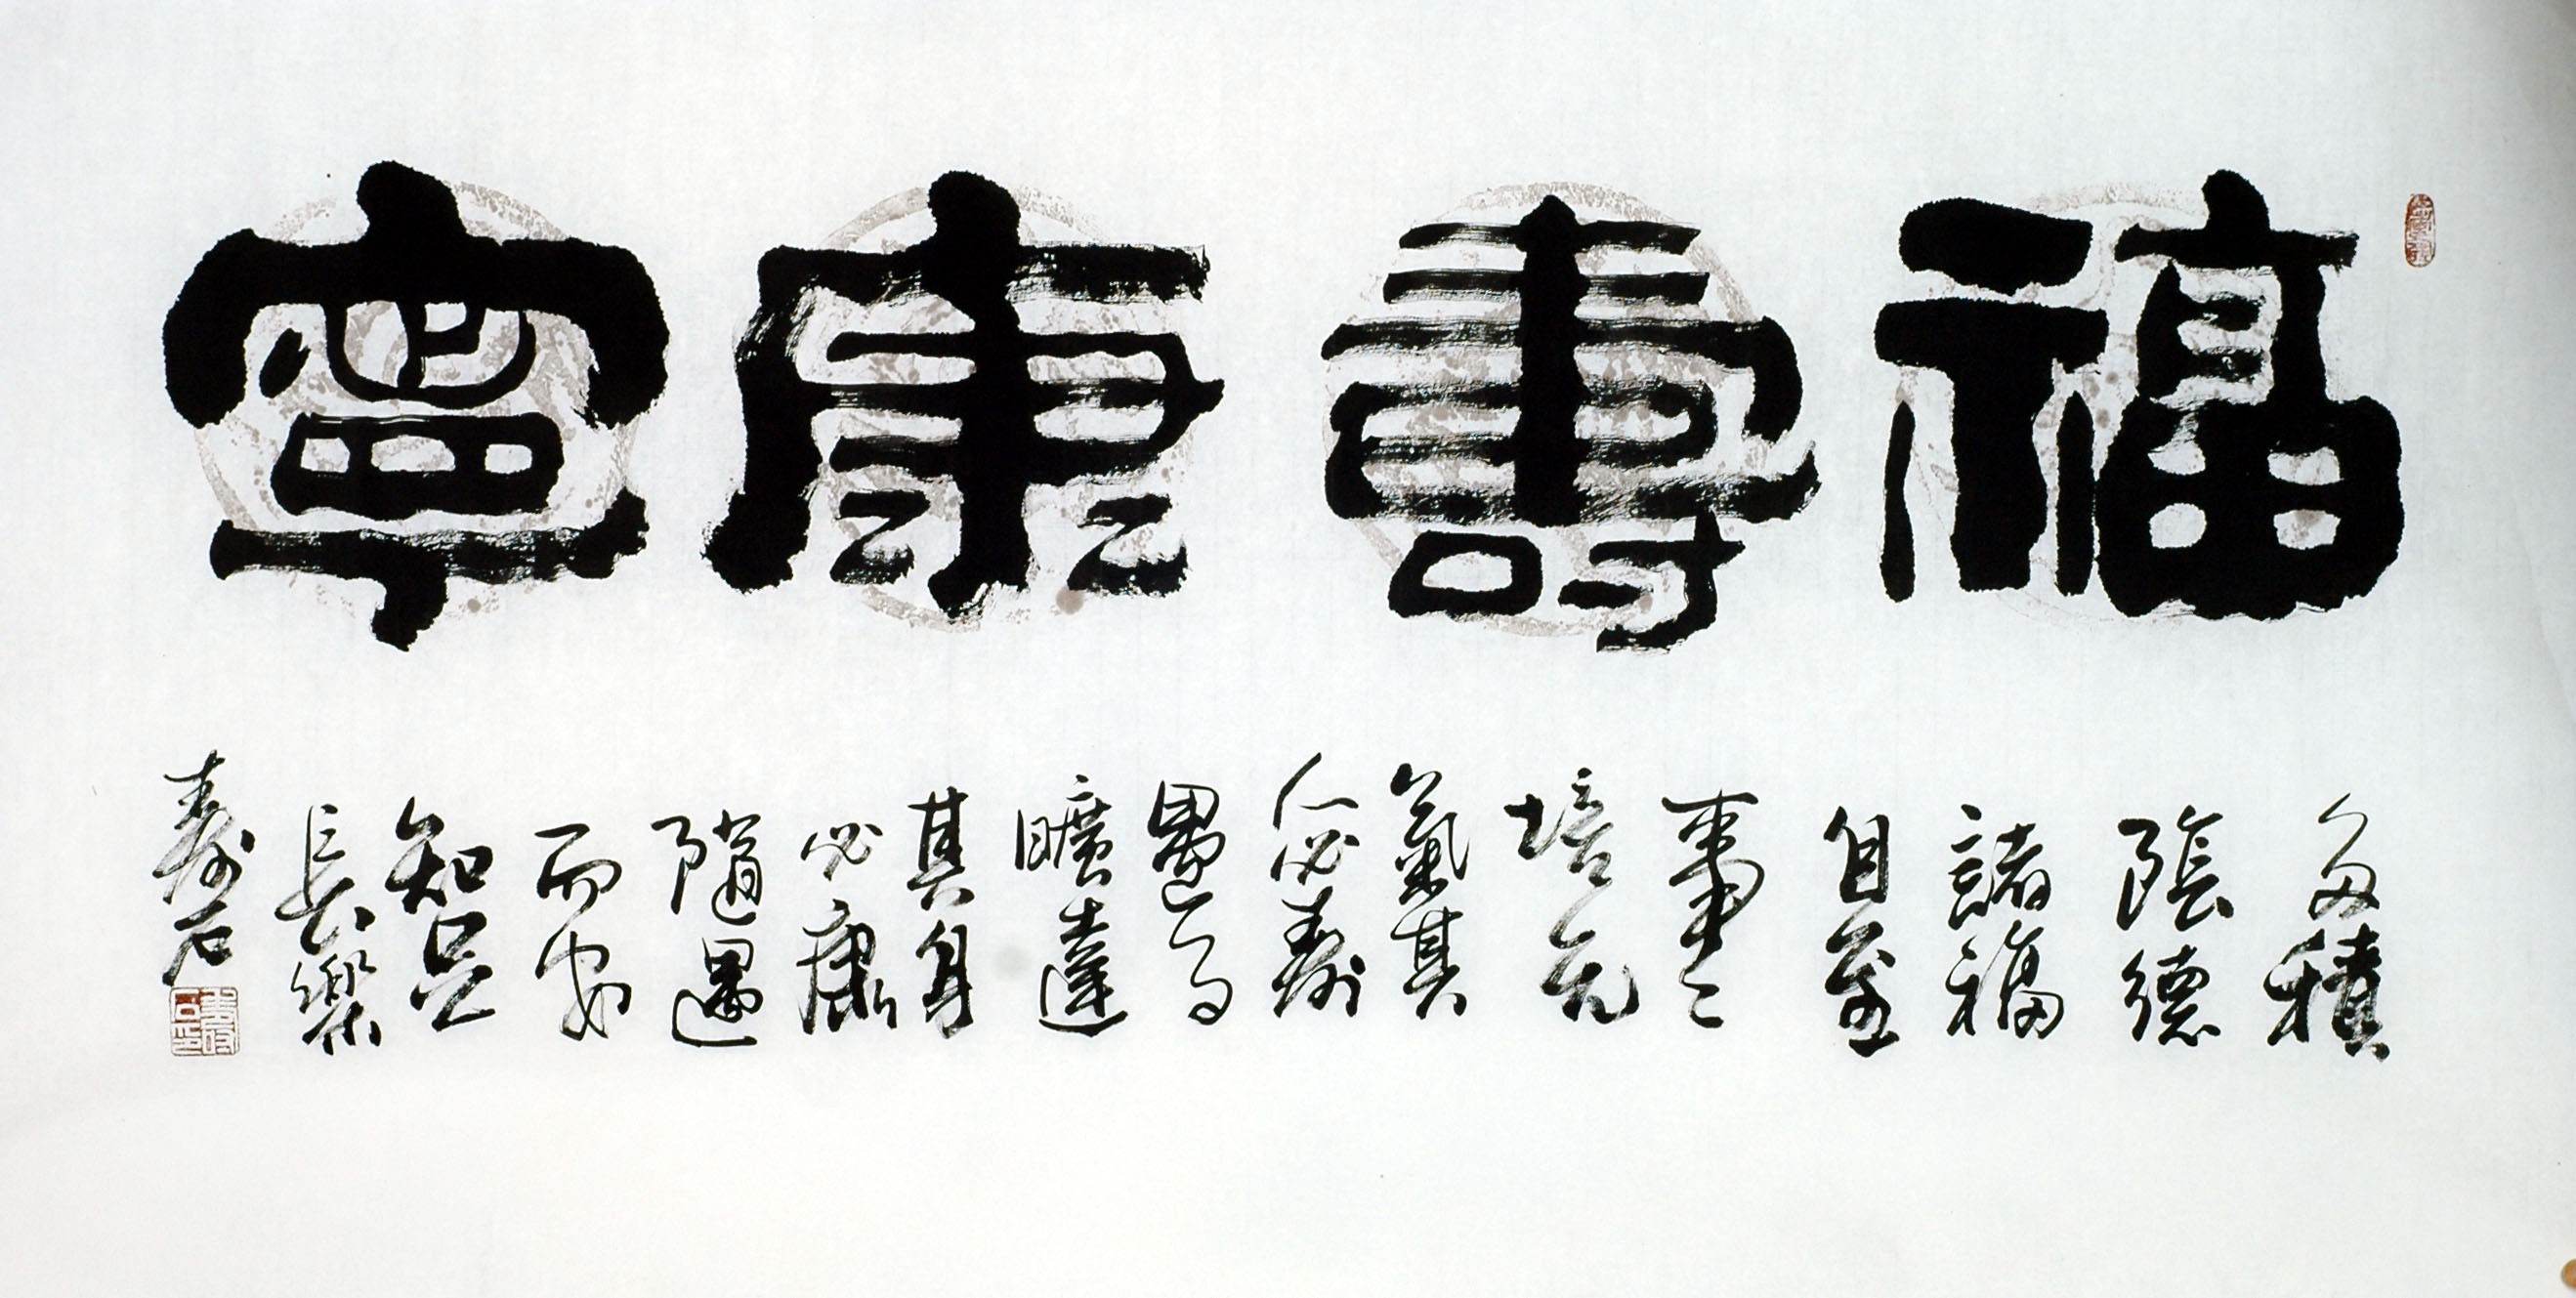 福壽康寧
多積
陰德
諸福
自至
事事
培元
氣其
人必壽
遇事
曠達
其身
必康
隨遇
而安
知足
長樂
壽石